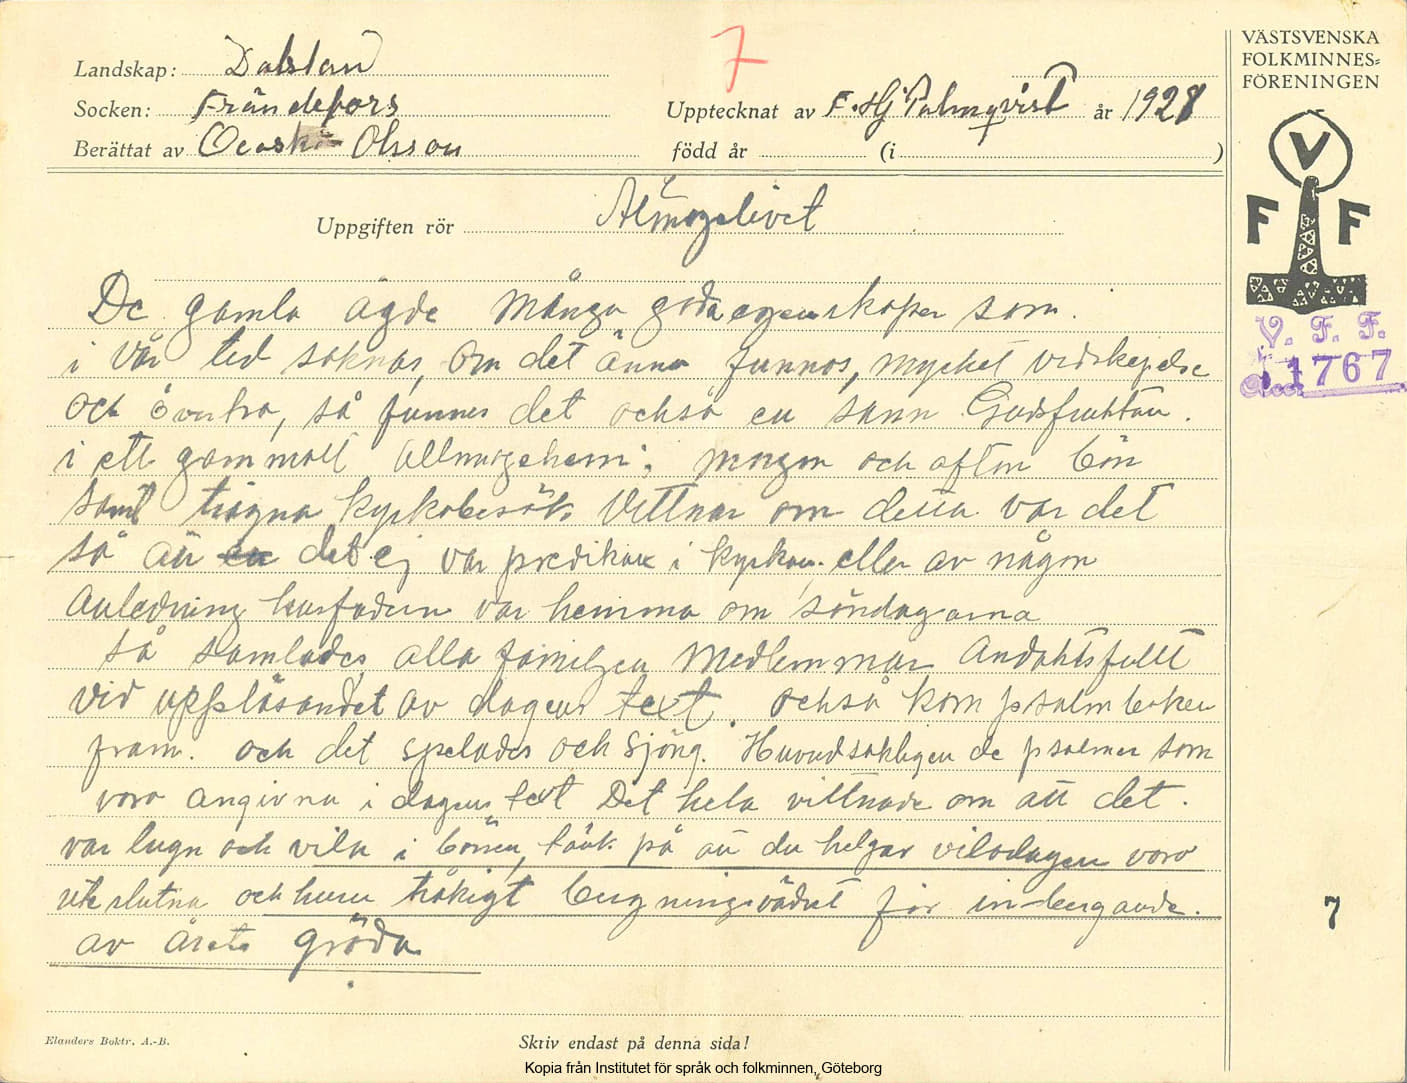 7
VÄSTSVENSKA
FOLKMINNES=
FÖRENINGEN
Landskap: Dalsland
Socken: Frändefors
Upptecknat av F. Hj Palmqvist år 1928
Berättat av Olsson
född år (i )
V
F F
Uppgiften rör Allmogelivet
V. F. F.
1767
De gamla ägde många goda egenskaper som.
i vår tid saknas, om det ännu funnos, mycket vidskepelse
och övertro, så funnes det också en sann Gudsfruktan.
i ett gammalt allmogehem; morgon och afton bön
samt trägna kyrkobesök vittnar om detta var det
så att det ej var predikan i kyrkan. eller av någon
Anledning husfadern var hemma om söndagarna
så samlades alla familjen medlemmar Andaktsfullt
vid uppläsandet av dagens text. också kom psalmboken
fram. och det spelades och sjöng. Huvudsakligen de psalmer som
voro angivna i dagens text Det hela vittnade om att det.
var lugn och vila i bönen, tänk på att du helgar vilodagen voro
uteslutna och huru tråkigt bergningsvädret för inbergande.
av årets gröda
7
Elanders Boktr. A.-B.
Skriv endast på denna sida!
Kopia från Institutet för språk och folkminnen, Göteborg